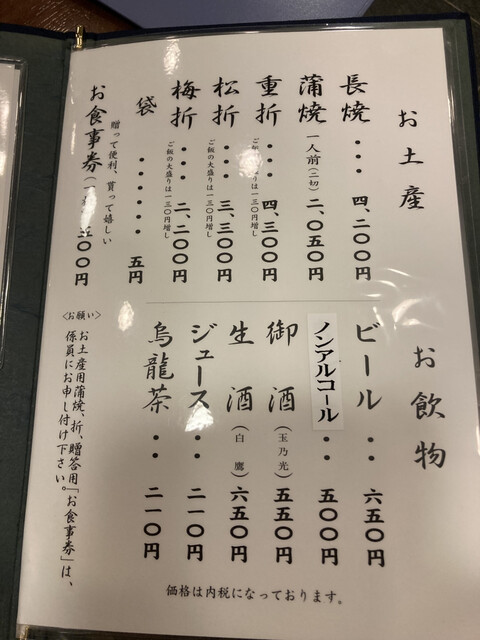 お土産
長焼・・・四、二〇〇円
蒲焼 一人前(二切)二、〇五〇円
重折・・・四、三〇〇円
ご飯の大盛りは一三〇円増し
松折・・・三、三〇〇円
ご飯の大盛りは一三〇円増し
梅折・・・二、二〇〇円
ご飯の大盛りは一三〇円増し
袋・・・・・・五円
贈って便利、貰って嬉しい
お食事券(一 〇〇円
お飲物
ビール・・六五〇円
ノンアルコール・・五〇〇円
御酒(玉乃光)五五〇円
生酒(白鷹)六五〇円
ジュース・・二一〇円
烏龍茶・・二一〇円
〈お願い〉
お土産用蒲焼、折、贈答用「お食事券」は、
係員にお申し付け下さい。
価格は内税になっております。